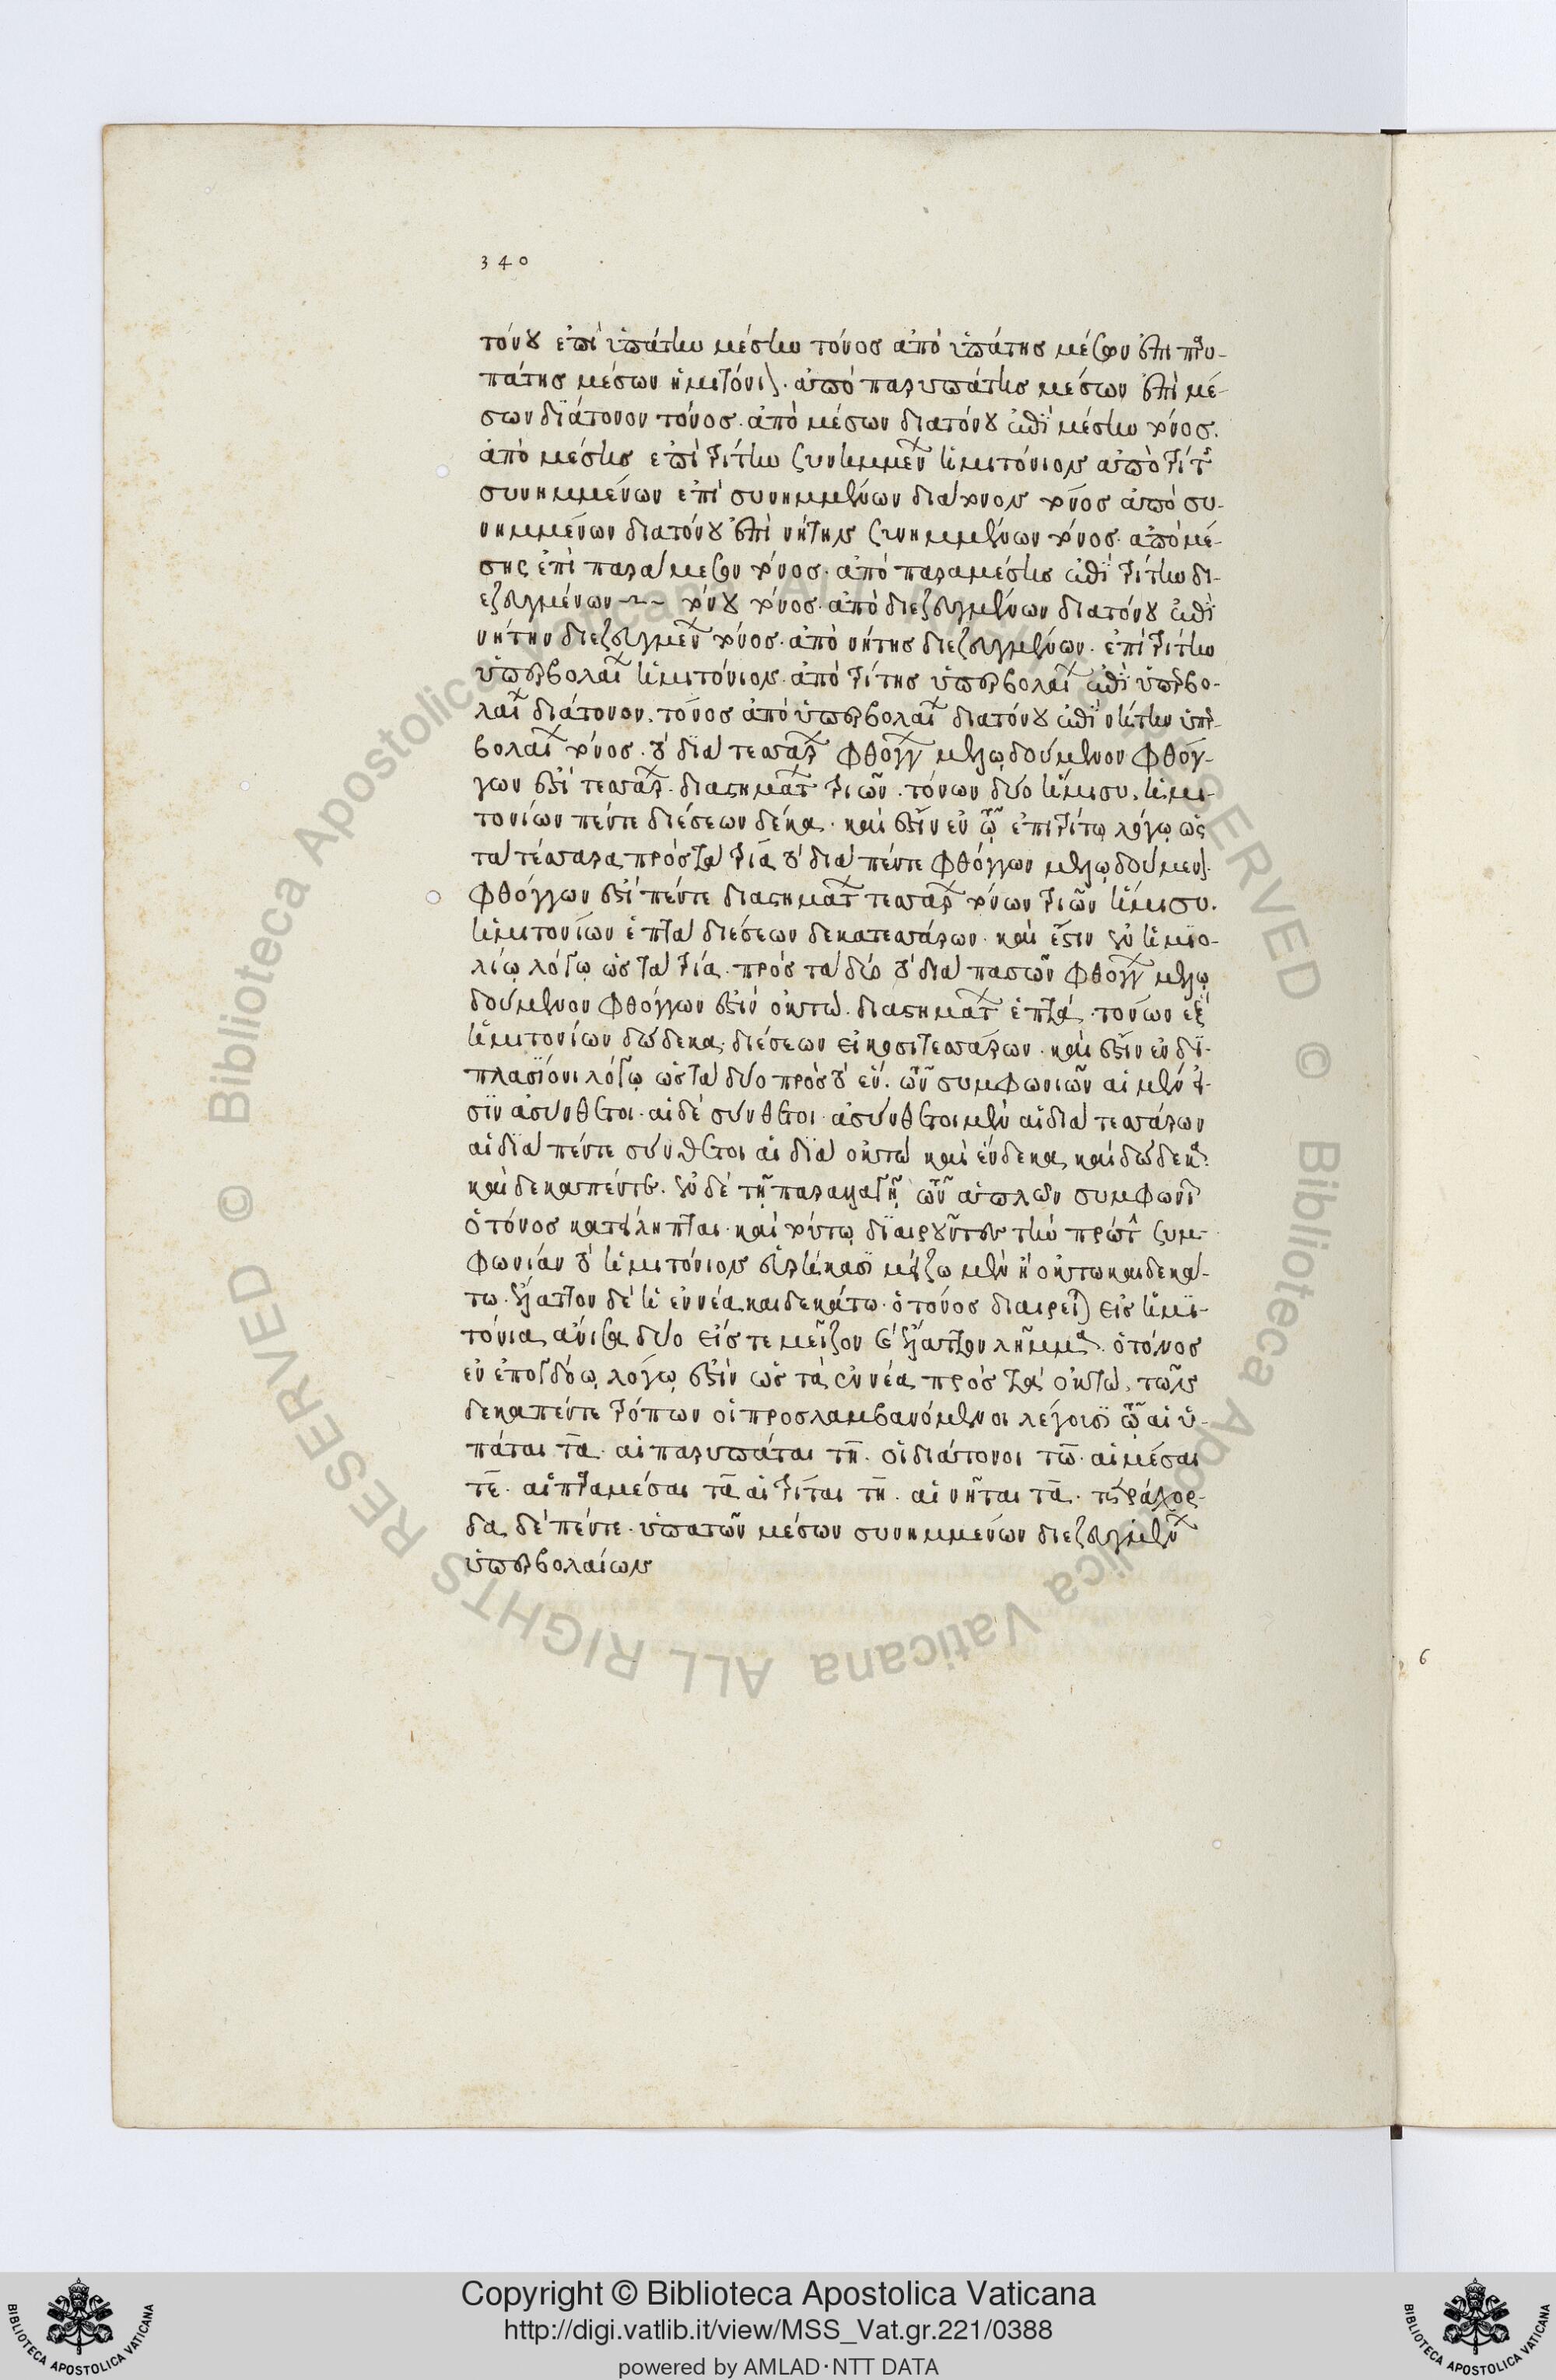 340
τόνου ἐπὶ ὑπάτην μέσην τόνος ἀπὸ ὑπάτης μέσων ἐπὶ παρυ-
πάτης μέσων ἡμιτόνιον. ἀπὸ παρυπάτης μέσων ἐπὶ μέ-
σων διάτονον τόνος. ἀπὸ μέσων διατόνου ἐπὶ μέσην τόνος.
ἀπὸ μέσης ἐπὶ τρίτην συνημμένων ἡμιτόνιον ἀπὸ τρίτης
συνημμένων ἐπὶ συνημμένων διάτονον τόνος ἀπὸ συ-
νημμένων διατόνου ἐπὶ νήτην συνημμένων τόνος. ἀπὸ μέ-
σης ἐπὶ παράμεσον τόνος. ἀπὸ παραμέσης ἐπὶ τρίτην δι-
εζευγμένων τόνου τόνος. ἀπὸ διεζευγμένων διατόνου ἐπὶ
νήτην διεζευγμένων τόνος. ἀπὸ νήτης διεζευγμένων. ἐπὶ τρίτην
ὑπερβολαίων ἡμιτόνιον. ἀπὸ τρίτης ὑπερβολαίων ἐπὶ ὑπερβο-
λαίων διάτονον. τόνος ἀπὸ ὑπερβολαίων διατόνου ἐπὶ νήτην ὑπερ-
βολαίων τόνος. τὸ διὰ τεσσάρων φθόγγων μελῳδούμενον φθόγ-
γων ἐστὶ τεσσάρων. διαστημάτων τριῶν. τόνων δύο ἥμισυ. ἡμι-
τονίων πέντε διέσεων δέκα. καὶ ἔστιν ἐν τῷ ἐπιτρίτῳ λόγῳ ὡς
τὰ τέσσαρα πρὸς τὰ τρία τὸ διὰ πέντε φθόγγων μελῳδούμενον.
φθόγγων ἐστὶ πέντε διαστημάτων τεσσάρων τόνων τριῶν ἥμισυ.
ἡμιτονίων ἑπτὰ διέσεων δεκατεσσάρων. καὶ ἔστιν ἐν ἡμιο-
λίῳ λόγῳ ὡς τὰ τρία. πρὸς τὰ δύο τὸ διὰ πασῶν φθόγγων μελῳ
δούμενον φθόγγων ἐστὶν ὀκτώ. διαστημάτων ἑπτά. τόνων ἓξ
ἡμιτονίων δώδεκα. διέσεων εἰκοσιτεσσάρων. καὶ ἔστιν ἐν δι-
πλασίονι λόγῳ ὡς τὰ δύο πρὸς τὸ ἕν. τῶν συμφωνιῶν αἱ μέν εἰ-
σιν ἀσύνθετοι. αἱ δὲ σύνθετοι. ἀσύνθετοι μὲν αἱ διὰ τεσσάρων
αἱ διὰ πέντε σύνθετοι αἱ διὰ ὀκτὼ καὶ ἕνδεκα, καὶ δώδεκα.
καὶ δεκαπέντε. ἐν δὲ τῇ παραλλαγῇ τῶν ἁπλῶν συμφωνιῶν
ὁ τόνος κατείληπται. καὶ τούτῳ διαιροῦντων τὴν πρώτην συμ-
φωνίαν τὸ ἡμιτόνιον εὑρήκασι μείζω μὲν ἢ ὀκτωκαιδεκά-
τω. ἔλαττον δὲ ἢ ἐννεακαιδεκάτω. ὁ τόνος διαιρεῖται εἰς ἡμι-
τόνια ἄνισα δύο εἴς τε μεῖζον καὶ ἔλαττον λῆμμα. ὁ τόνος
ἐν ἐπογδόῳ λόγῳ ἐστὶν ὡς τὰ ἐννέα πρὸς τὰ ὀκτώ. τῶν
δεκαπέντε τρόπων οἱ προσλαμβανόμενοι λέγουσι τῷ αἱ ὑ-
πάται τα. αἱ παρυπάται τη. οἱ διάτονοι τω. αἱ μέσαι
τε. αἱ παραμέσαι τα αἱ τρίται τη. αἱ νῆται τα. τετράχορ-
δα δὲ πέντε. ὑπατῶν μέσων συνημμένων διεζευγμένων
ὑπερβολαίων
6
Copyright © Biblioteca Apostolica Vaticana
http://digi.vatlib.it/view/MSS_Vat.gr.221/0388
powered by AMLAD·NTT DATA
BIBLIOTECA APOSTOLICA VATICANA
BIBLIOTECA APOSTOLICA VATICANA
© Biblioteca Apostolica Vaticana ALL RIGHTS RESERVED
© Biblioteca Apostolica Vaticana ALL RIGHTS RESERVED